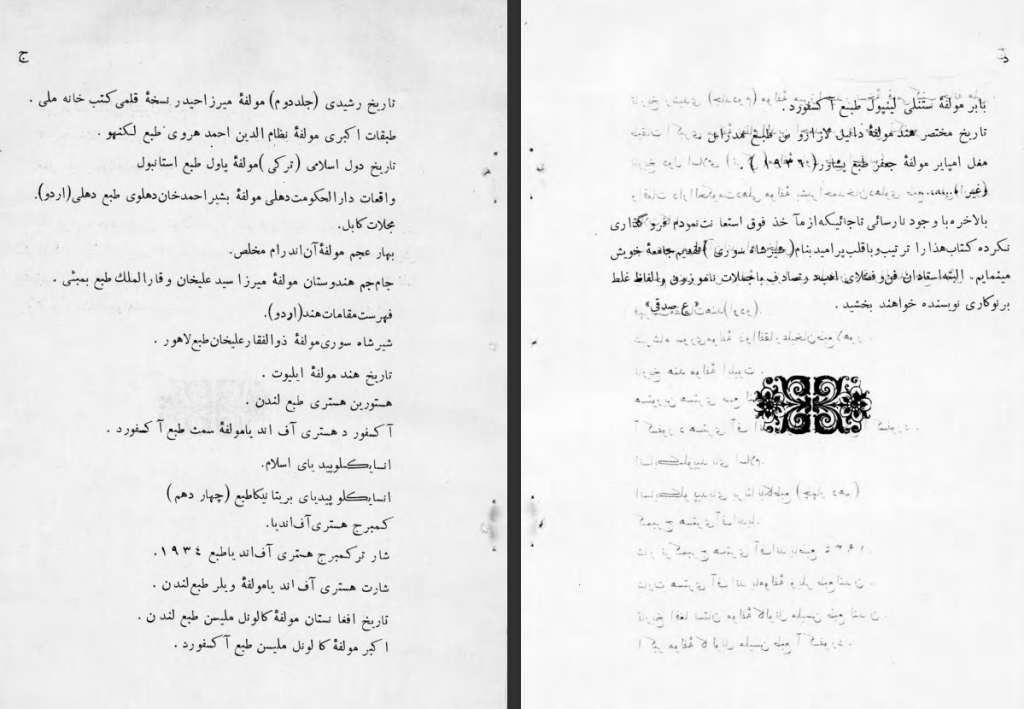 ج
تاریخ رشیدی (جلددوم) مولفهٔ میرزاحیدر نسخهٔ قلمی کتب خانه ملی .
طبقات اکبری مولفهٔ نظام الدین احمد هروی طبع لکنهو .
تاریخ دول اسلامی (ترکی) مولفهٔ پاول طبع استانبول
واقعات دارالحکومت دهلی مولفهٔ بشیراحمدخان دهلوی طبع دهلی (اردو).
مجلات کابل.
بهار عجم مولفهٔ آن اندرام مخلص.
جام جم هندوستان مولفهٔ میرزا سید علیخان وقارالملك طبع بمبئی .
فهرست مقامات هند (اردو).
شیرشاه سوری مولفهٔ ذوالفقارعلیخان طبع لاهور .
تاریخ هند مولفهٔ ایلیوت .
هستورین هستری طبع لندن .
آکسفورد هستری آف اندیا مولفهٔ سمت طبع آکسفورد .
انسایکلوپیدیای اسلام.
انسایکلوپیدیای بریتانیکا طبع (چهاردهم)
کمبرج هستری آف اندیا.
شارتر کمبرج هستری آف اندیا طبع ۱۹۳٤.
شارت هستری آف اندیا مولفهٔ ویلر طبع لندن .
تاریخ افغانستان مولفهٔ کالونل ملیسن طبع لندن .
اکبر مولفهٔ کالونل ملیسن طبع آکسفورد .
بابر مولفهٔ ستنلی لینپول طبع آکسفورد.
تاریخ مختصر هند مولفهٔ دانیل لازارو س طبع مدراس
مغل امپایر مولفهٔ جعفر طبع پشاور (۱۹۳٦ ع) .
(غیره) ......
بالاخره با وجود نارسائی تاجائیکه از مآخذ فوق استعانت نمودم فروگذاری
نکرده کتاب هذا را ترتیب و با قلب پرامید بنام (شیرشاه سوری) تقدیم جامعهٔ خویش
مینمایم. البته استادان فن و فضلای اهید و تصادف با جملات ناموزون و الفاظ غلط
برنوکاری نویسنده خواهند بخشید .
«ع صدقی»